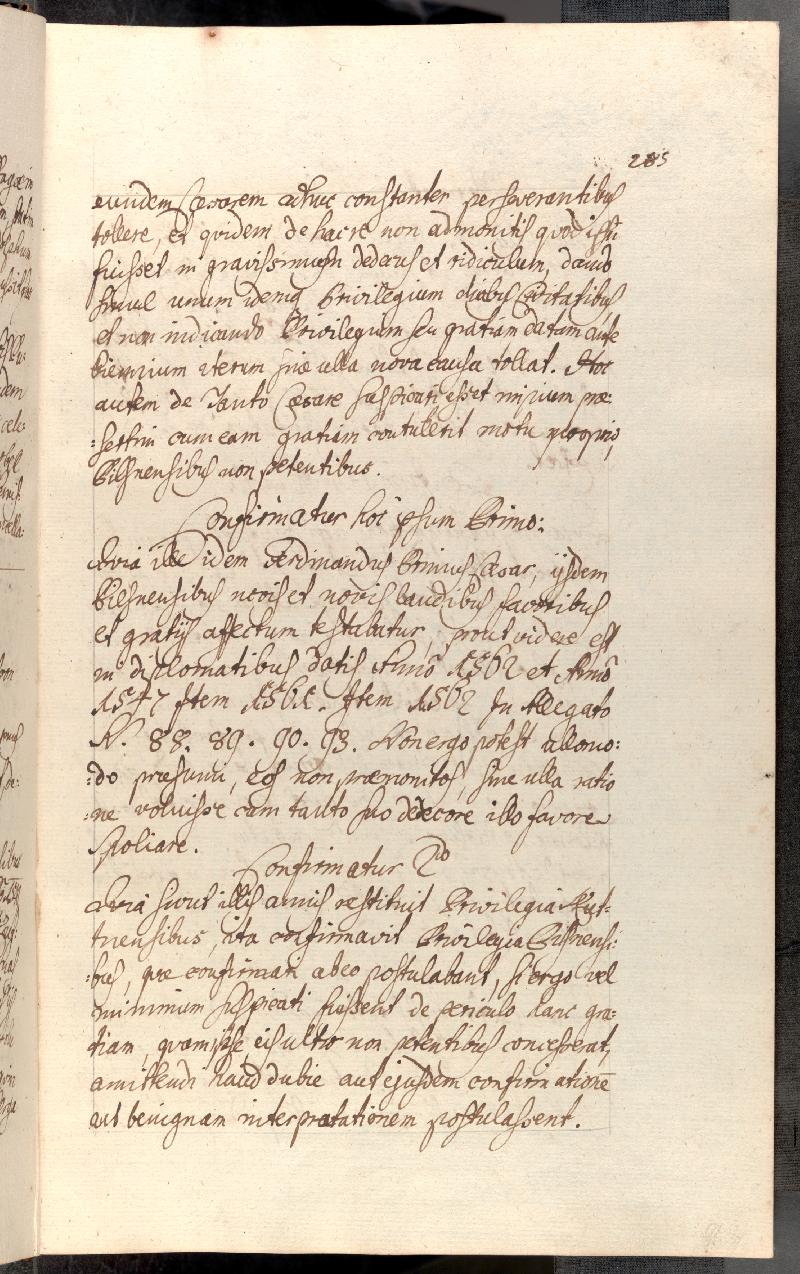 285
eundem Cæsarem adhuc constanter perseverantibus
tollere, et quidem de hac re non admonitis quod ipsi
fuisset in gravissimum dedecus et ridiculum, dando
simul unum idemq Privilegium duabus Civitatibus
et non indicando Privilegium seu gratiam datam ante
biennium iterum sine ulla nova causa tollat. Hoc
autem de Tanto Cæsare suspicari esset nimium præ:
:sertim cum eam gratiam contulerit motu proprio,
Pilsnensibus non petentibus.
Confirmatur hoc ipsum Primo:
Quia ille idem Ferdinandus Primus Cæsar, ijsdem
Pilsnensibus novis et novis laudibus favoribus
et gratijs affectum testabatur, prout videre est
in diplomatibus datis Anno 1562 et Anno
1547 Item 1561. Item 1562 In Allegato
N. 88. 89. 90. 93. Non ergo potest ullomo:
:do præsumi, eos non præmonitos, sine ulla ratio
:ne voluisse cum tanto suo dedecore illo favore
spoliare.
Confirmatur 2do
Quia sicut illis annis restituit Privilegia Kut:
tnensibus, ita confirmavit Privilegia Pilsnensi:
:bus, quæ confirmari ab eo postulabant, si ergo vel
minimum suspicati fuissent de periculo hanc gra:
tiam, quam ipse eis ultro non petentibus concesserat,
amittendi haud dubie aut ejusdem confirmatione
aut benignam interpretationem postulassent.